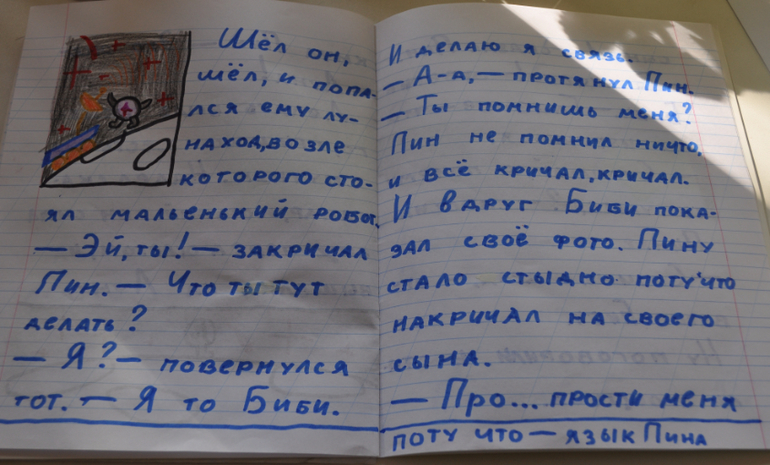 Шёл он,
шёл, и попа-
лся ему лу-
наход, возле
которого сто-
ял маленький робот.
— Эй, ты! — закричал
Пин. — Что ты тут
делать?
— Я? — повернулся
тот. — Я то Биби.
И делаю я связь.
— А-а, — протянул Пин.
— Ты помнишь меня?
Пин не помнил ничто,
и всё кричал, кричал.
И вдруг Биби пока-
зал своё фото. Пину
стало стыдно поту'что
накричал на своего
сына.
— Про... прости меня
поту что — язык Пина